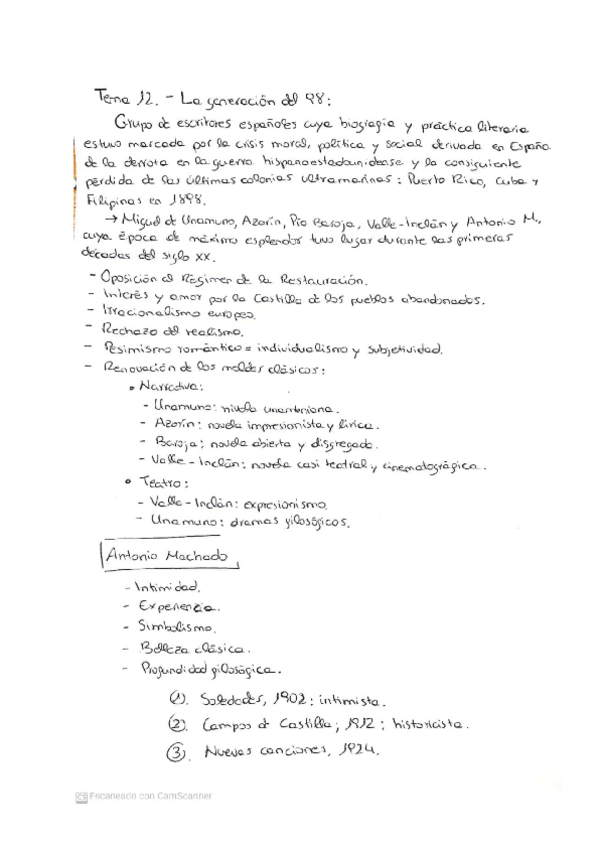 Tema 12. - La generación del 98:
Grupo de escritores españoles cuya biografia y práctica literaria
estuvo marcada por la crisis moral, política y social derivada en España
de la derrota en la guerra hispanoestadounidense y la consiguiente
pérdida de las últimas colonias ultramarinas: Puerto Rico, Cuba y
Filipinas en 1898.
→ Miguel de Unamuno, Azorín, Pío Baroja, Valle-Inclán y Antonio M.,
cuya época de máximo esplendor tuvo lugar durante las primeras
décadas del siglo XX.
- Oposición al Régimen de la Restauración.
- Interés y amor por la Castilla de los pueblos abandonados.
- Irracionalismo europeo.
- Rechazo del realismo.
- Pesimismo romántico = individualismo y subjetividad.
- Renovación de los moldes clásicos:
• Narrativa:
- Unamuno: nivola unamuniana.
- Azorín: novela impresionista y lírica.
- Baroja: novela abierta y disgregada.
- Valle-Inclán: novela casi teatral y cinematográfica.
• Teatro:
- Valle-Inclán: expresionismo.
- Unamuno: dramas filosóficos.
Antonio Machado
- Intimidad.
- Experiencia.
- Simbolismo.
- Belleza clásica.
- Profundidad filosófica.
①. Soledades, 1902: intimista.
②. Campos d Castilla; 1912; historicista.
③. Nuevas canciones, 1924.
CS Escaneado con CamScanner